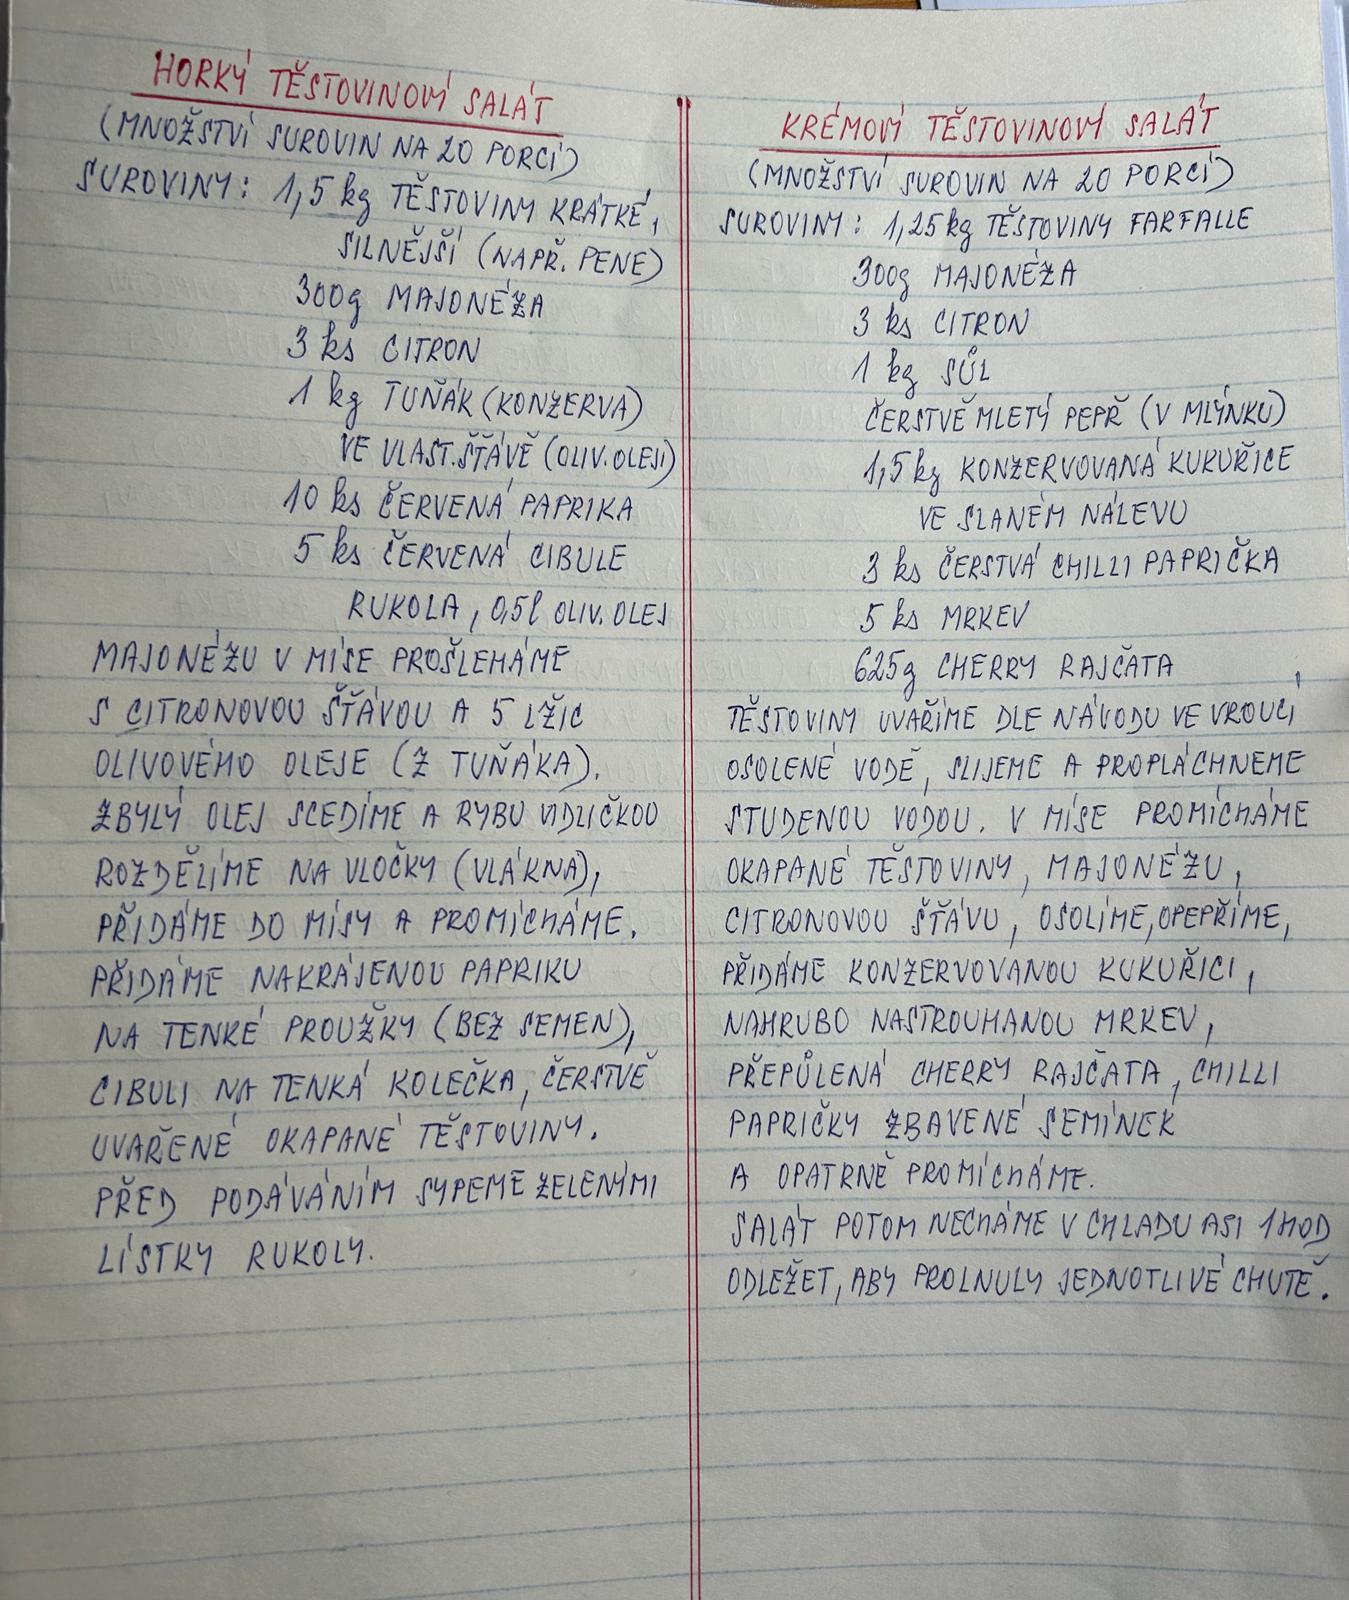 HORKÝ TĚSTOVINOVÝ SALÁT
(MNOŽSTVÍ SUROVIN NA 20 PORCÍ)
SUROVINY: 1,5 kg TĚSTOVINY KRÁTKÉ,
SILNĚJŠÍ (NAPŘ. PENE)
300g MAJONÉZA
3 ks CITRON
1 kg TUŇÁK (KONZERVA)
VE VLAST. ŠŤÁVĚ (OLIV. OLEJI)
10 ks ČERVENÁ PAPRIKA
5 ks ČERVENÁ CIBULE
RUKOLA, 0,5l OLIV. OLEJ
MAJONÉZU V MÍSE PROŠLEHÁME
S CITRONOVOU ŠŤÁVOU A 5 LŽIC
OLIVOVÉHO OLEJE (Z TUŇÁKA).
ZBYLÝ OLEJ SCEDÍME A RYBU VIDLIČKOU
ROZDĚLÍME NA VLOČKY (VLÁKNA),
PŘIDÁME DO MÍSY A PROMÍCHÁME.
PŘIDÁME NAKRÁJENOU PAPRIKU
NA TENKÉ PROUŽKY (BEZ SEMEN),
CIBULI NA TENKÁ KOLEČKA, ČERSTVĚ
UVAŘENÉ OKAPANÉ TĚSTOVINY.
PŘED PODÁVÁNÍM SYPEME ZELENÝMI
LÍSTKY RUKOLY.
KRÉMOVÝ TĚSTOVINOVÝ SALÁT
(MNOŽSTVÍ SUROVIN NA 20 PORCÍ)
SUROVINY: 1,25kg TĚSTOVINY FARFALLE
300g MAJONÉZA
3 ks CITRON
1 kg SŮL
ČERSTVĚ MLETÝ PEPŘ (V MLÝNKU)
1,5 kg KONZERVOVANÁ KUKUŘICE
VE SLANÉM NÁLEVU
3 ks ČERSTVÁ CHILLI PAPRIČKA
5 ks MRKEV
625g CHERRY RAJČATA
TĚSTOVINY UVAŘÍME DLE NÁVODU VE VROUCÍ
OSOLENÉ VODĚ, SLIJEME A PROPLÁCHNEME
STUDENOU VODOU. V MÍSE PROMÍCHÁME
OKAPANÉ TĚSTOVINY, MAJONÉZU,
CITRONOVOU ŠŤÁVU, OSOLÍME, OPEPŘÍME,
PŘIDÁME KONZERVOVANOU KUKUŘICI,
NAHRUBO NASTROUHANOU MRKEV,
PŘEPŮLENÁ CHERRY RAJČATA, CHILLI
PAPRIČKY ZBAVENÉ SEMÍNEK
A OPATRNĚ PROMÍCHÁME.
SALÁT POTOM NECHÁME V CHLADU ASI 1HOD
ODLEŽET, ABY PROLNULY JEDNOTLIVÉ CHUTĚ.